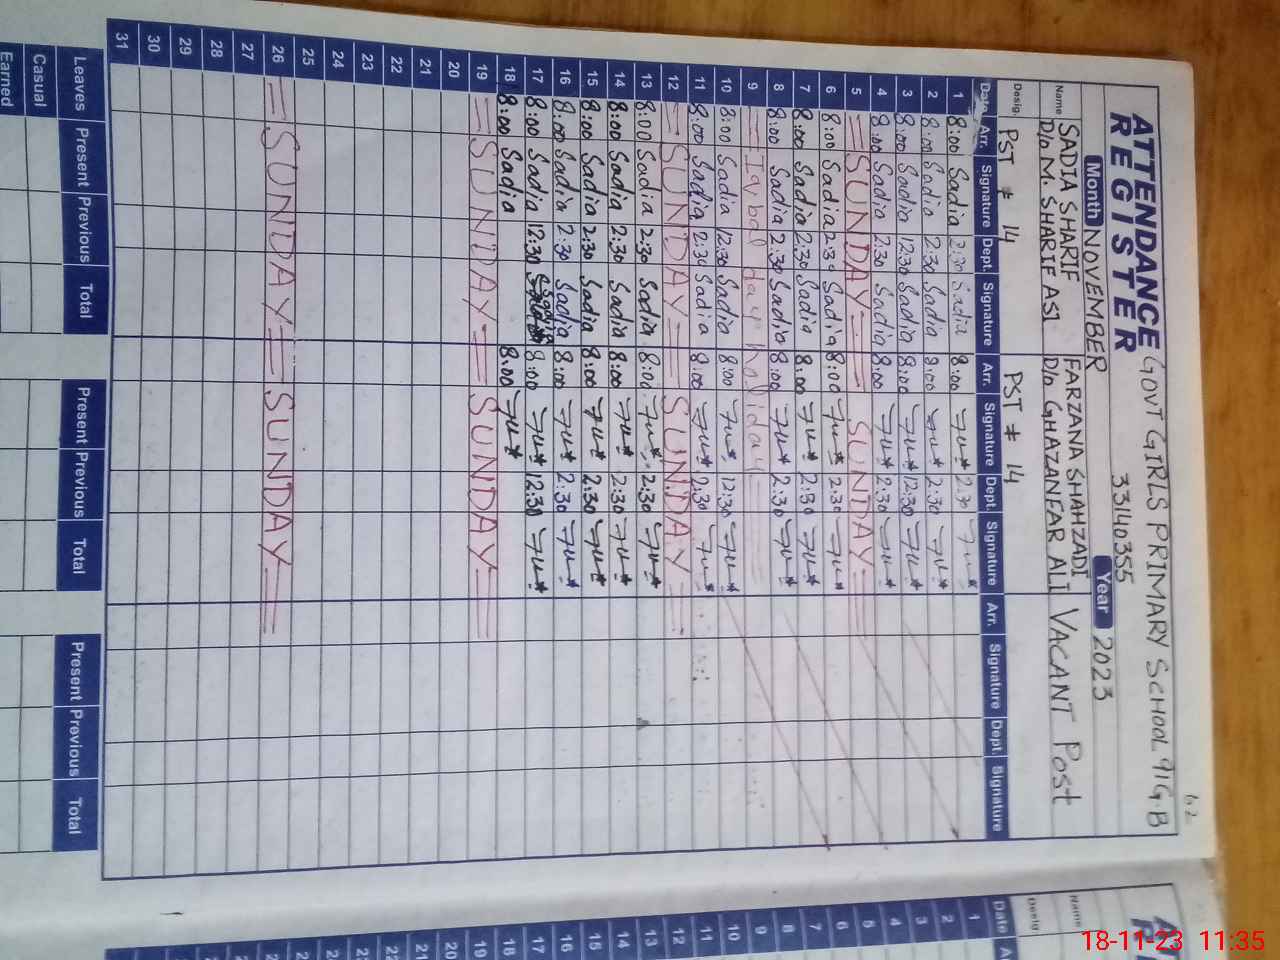 62
ATTENDANCE GOVT GIRLS PRIMARY SCHOOL 91G.B
REGISTER 33140355
Month NOVEMBER Year 2023
Name SADIA SHARIF FARZANA SHAHZADI VACANT Post
D/o M. SHARIF ASI D/o GHAZANFAR ALI
Desig. PST # 14 PST # 14
Date Arr. Signature Dept. Signature Arr. Signature Dept. Signature Arr. Signature Dept. Signature
1 8:00 Sadia 2:30 Sadia 8:00 2:30
2 8:00 Sadia 2:30 Sadia 8:00 2:30
3 8:00 Sadia 12:30 Sadia 8:00 12:30
4 8:00 Sadia 2:30 Sadia 8:00 2:30
5 SUNDAY SUNDAY
6 8:00 Sadia 2:30 Sadia 8:00 2:30
7 8:00 Sadia 2:30 Sadia 8:00 2:30
8 8:00 Sadia 2:30 Sadia 8:00 2:30
9 Iqbal day holiday
10 8:00 Sadia 12:30 Sadia 8:00 12:30
11 8:00 Sadia 2:30 Sadia 8:00 2:30
12 SUNDAY SUNDAY
13 8:00 Sadia 2:30 Sadia 8:00 2:30
14 8:00 Sadia 2:30 Sadia 8:00 2:30
15 8:00 Sadia 2:30 Sadia 8:00 2:30
16 8:00 Sadia 2:30 Sadia 8:00 2:30
17 8:00 Sadia 12:30 Sadia 8:00 12:30
18 8:00 Sadia 8:00
19 SUNDAY SUNDAY
20
21
22
23
24
25
26 SUNDAY SUNDAY
27
28
29
30
31
Leaves Present Previous Total Present Previous Total Present Previous Total
Casual
Earned
Name
Desig
Date
1
2
3
4
5
6
7
8
9
10
11
12
13
14
15
16
17
18
19
20
18-11-23 11:35